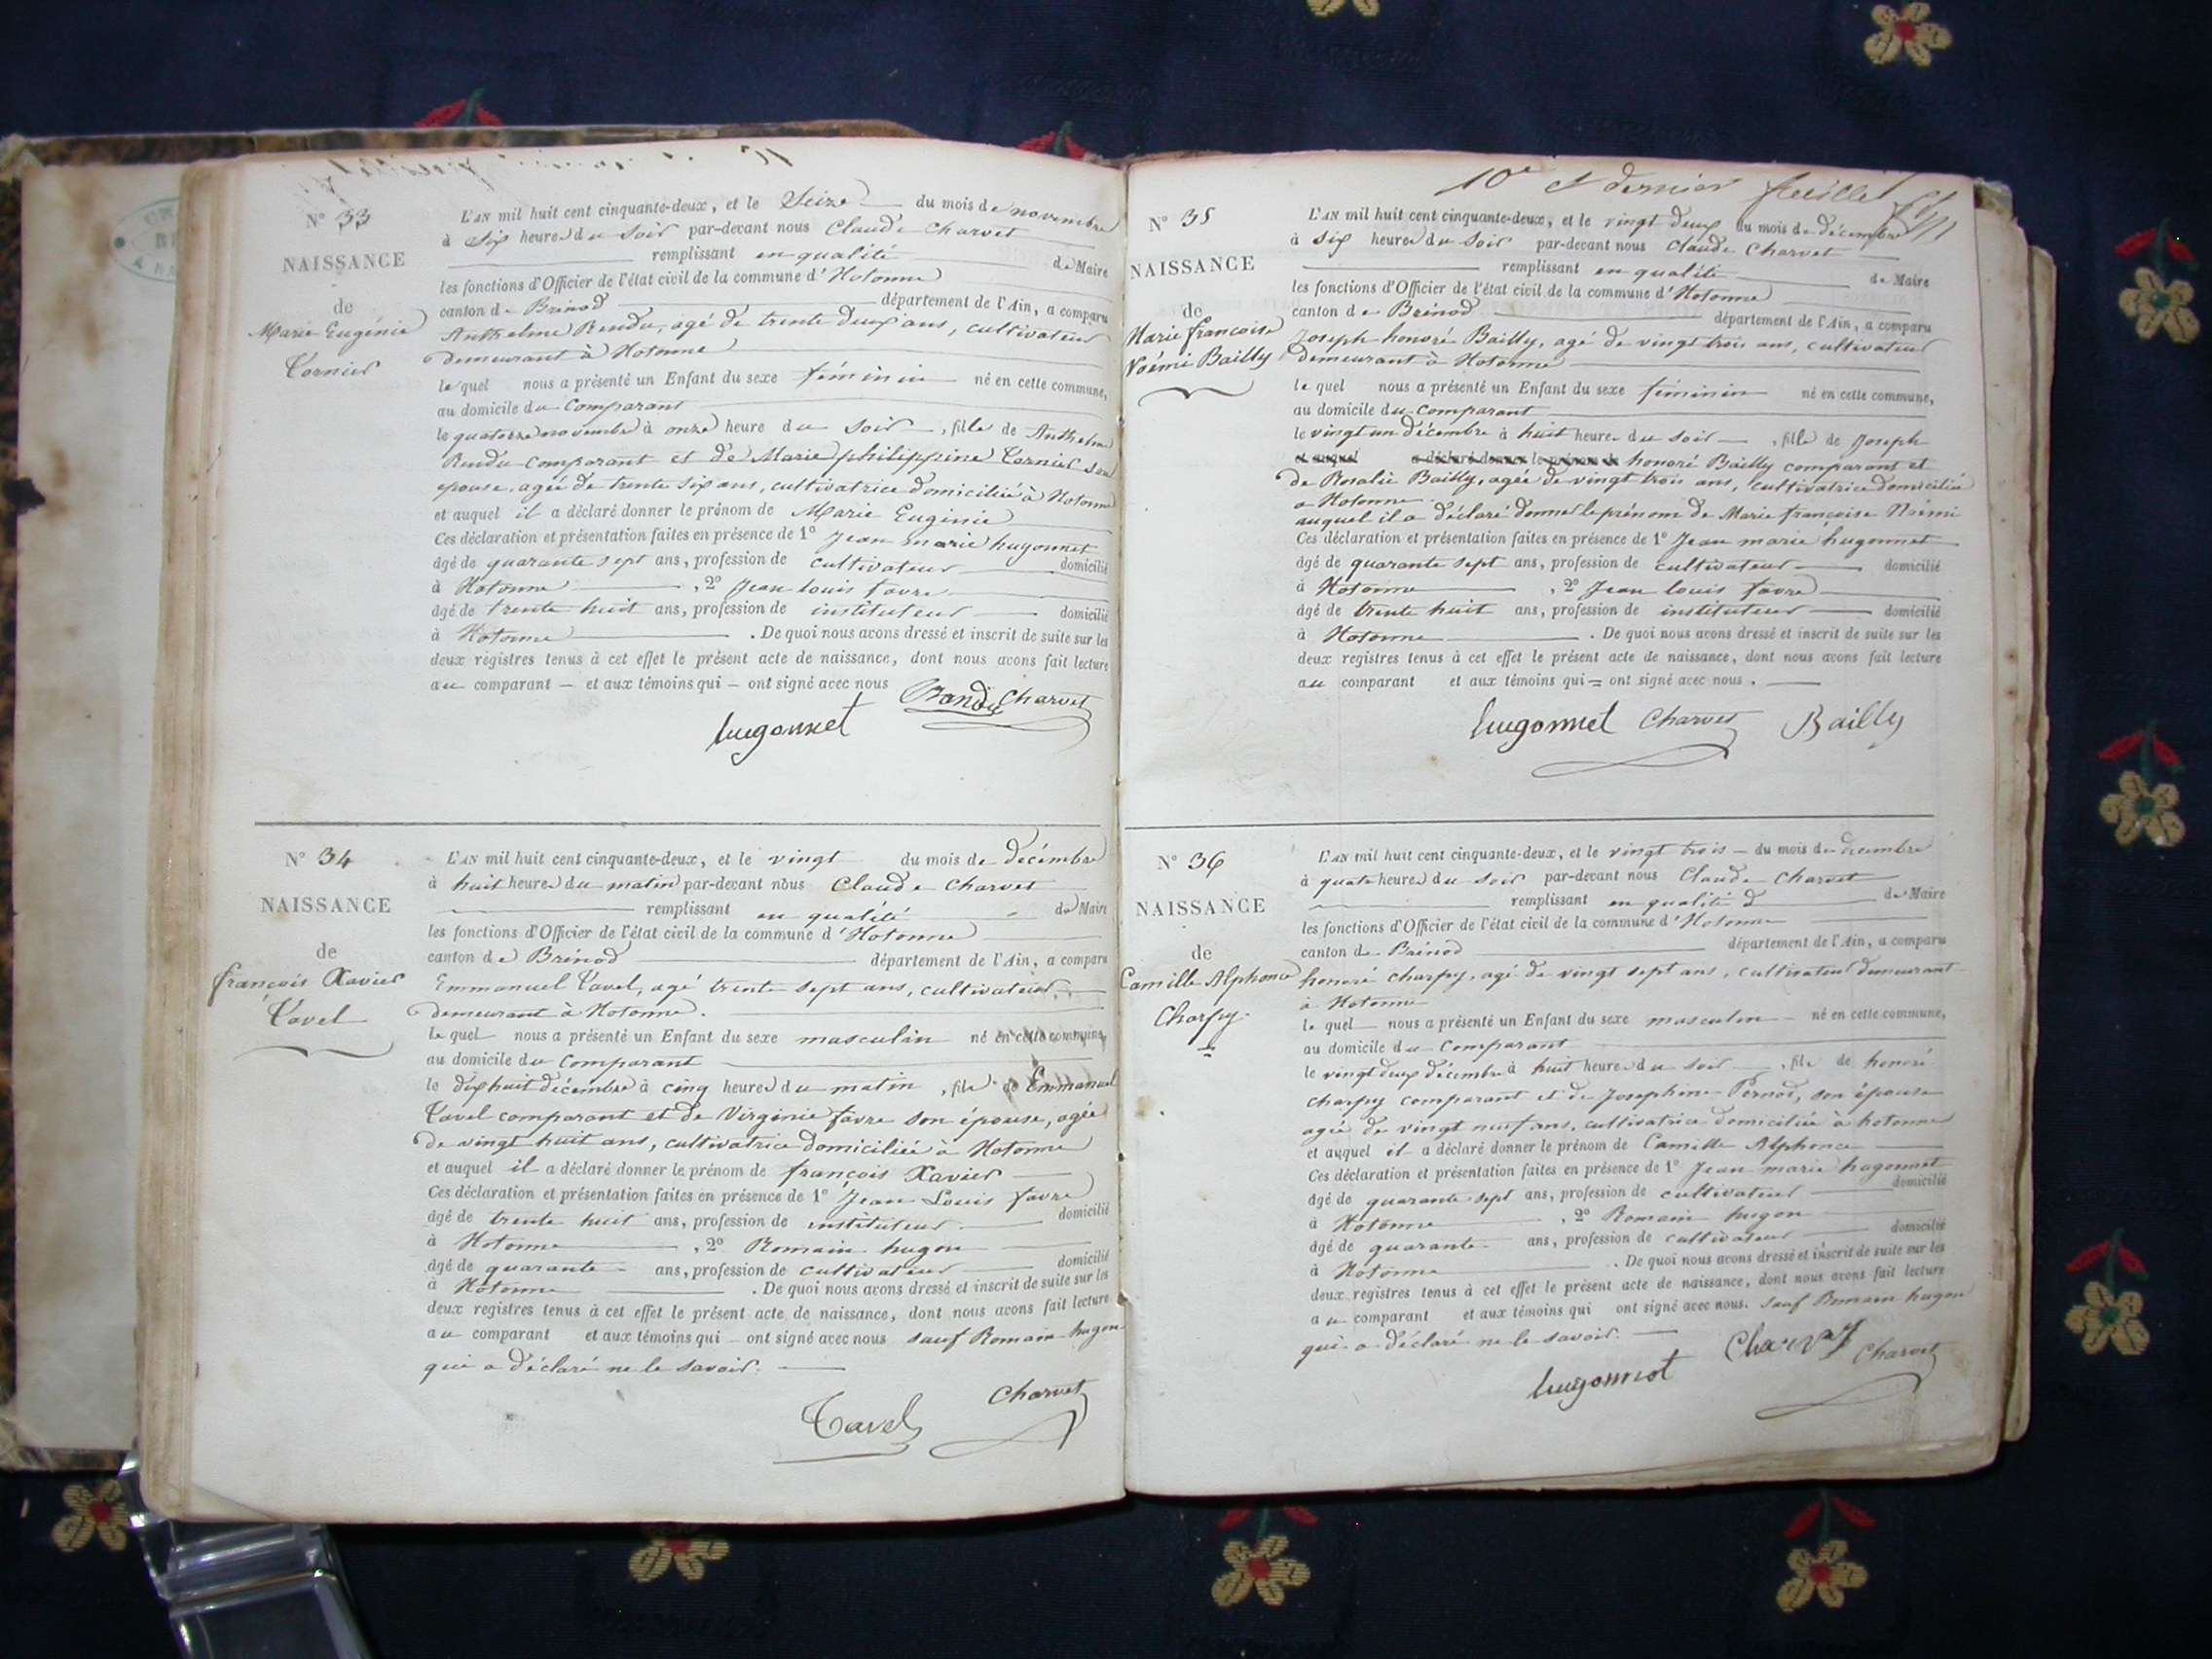 N° 33
NAISSANCE
de
Marie Eugénie
Cornier
L'AN mil huit cent cinquante-deux, et le Seize du mois de novembre
à six heures du soir par-devant nous Claude Charvet
remplissant en qualité de Maire
les fonctions d'Officier de l'état civil de la commune d'Hotonne
canton de Brénod département de l'Ain, a comparu
Anthelme Rendu, agé de trente deux ans, cultivateur
demeurant à Hotonne
le quel nous a présenté un Enfant du sexe féminin né en cette commune,
au domicile du Comparant
le quatorze novembre à onze heure du soir, fille de Anthelme
Rendu comparant et de Marie philippine Cornier son
epouse, agée de trente six ans, cultivatrice domiciliée à Hotonne
et auquel il a déclaré donner le prénom de Marie Eugénie
Ces déclaration et présentation faites en présence de 1° Jean marie hugonnet
âgé de quarante sept ans, profession de cultivateur domicilié
à Hotonne, 2° Jean louis favre
âgé de trente huit ans, profession de instituteur domicilié
à Hotonne. De quoi nous avons dressé et inscrit de suite sur les
deux registres tenus à cet effet le présent acte de naissance, dont nous avons fait lecture
au comparant et aux témoins qui ont signé avec nous
Charvet
hugonnet
N° 34
NAISSANCE
de
françois Xavier
Tavel
L'AN mil huit cent cinquante-deux, et le vingt du mois de décembre
à huit heures du matin par-devant nous Claude Charvet
remplissant en qualité de Maire
les fonctions d'Officier de l'état civil de la commune d'Hotonne
canton de Brénod département de l'Ain, a comparu
Emmanuel Tavel, agé trente sept ans, cultivateur,
demeurant à Hotonne.
le quel nous a présenté un Enfant du sexe masculin né en cette commune,
au domicile du Comparant
le dix huit décembre à cinq heures du matin, fils de Emmanuel
Tavel comparant et de Virginie favre son épouse, agée
de vingt huit ans, cultivatrice domiciliée à Hotonne
et auquel il a déclaré donner le prénom de françois Xavier
Ces déclaration et présentation faites en présence de 1° Jean Louis favre
âgé de trente huit ans, profession de instituteur domicilié
à Hotonne, 2° Romain hugon
âgé de quarante ans, profession de cultivateur domicilié
à Hotonne. De quoi nous avons dressé et inscrit de suite sur les
deux registres tenus à cet effet le présent acte de naissance, dont nous avons fait lecture
au comparant et aux témoins qui ont signé avec nous sauf Romain hugon
qui a déclaré ne le savoir.
Tavel Charvet
10e et dernier feuille
N° 35
NAISSANCE
de
Marie françoise
Noémi Bailly
L'AN mil huit cent cinquante-deux, et le vingt deux du mois de décembre
à six heures du soir par-devant nous Claude Charvet
remplissant en qualité de Maire
les fonctions d'Officier de l'état civil de la commune d'Hotonne
canton de Brénod département de l'Ain, a comparu
Joseph honoré Bailly, agé de vingt trois ans, cultivateur
demeurant à Hotonne
le quel nous a présenté un Enfant du sexe féminin né en cette commune,
au domicile du Comparant
le vingt un décembre à huit heures du soir, fille de Joseph
et auquel a déclaré donner le prénom de honoré Bailly comparant et
de Rosalie Bailly, agée de vingt trois ans, cultivatrice domiciliée
a Hotonne
auquel il a déclaré donner le prénom de Marie françoise Noémi
Ces déclaration et présentation faites en présence de 1° Jean marie hugonnet
âgé de quarante sept ans, profession de cultivateur domicilié
à Hotonne, 2° Jean louis favre
âgé de trente huit ans, profession de instituteur domicilié
à Hotonne. De quoi nous avons dressé et inscrit de suite sur les
deux registres tenus à cet effet le présent acte de naissance, dont nous avons fait lecture
au comparant et aux témoins qui ont signé avec nous.
hugonnet Charvet Bailly
N° 36
NAISSANCE
de
Camille Alphonce
Charpy
L'AN mil huit cent cinquante-deux, et le vingt trois du mois de decembre
à quatre heures du soir par-devant nous Claude Charvet
remplissant en qualité d de Maire
les fonctions d'Officier de l'état civil de la commune d'Hotonne
canton de Brénod département de l'Ain, a comparu
honoré charpy, agé de vingt sept ans, cultivateur demeurant
à Hotonne
le quel nous a présenté un Enfant du sexe masculin né en cette commune,
au domicile du Comparant
le vingt deux décembre à huit heures du soir, fils de honoré
charpy comparant et de Josephine Pernod, son épouse
agée de vingt neuf ans, cultivatrice domiciliée à hotonne
et auquel il a déclaré donner le prénom de Camille Alphonce
Ces déclaration et présentation faites en présence de 1° Jean marie hugonnet
âgé de quarante sept ans, profession de cultivateur domicilié
à Hotonne, 2° Romain hugon
âgé de quarante ans, profession de cultivateur domicilié
à Hotonne. De quoi nous avons dressé et inscrit de suite sur les
deux registres tenus à cet effet le présent acte de naissance, dont nous avons fait lecture
au comparant et aux témoins qui ont signé avec nous. sauf Romain hugon
qui a déclaré ne le savoir.
hugonnet Charvet